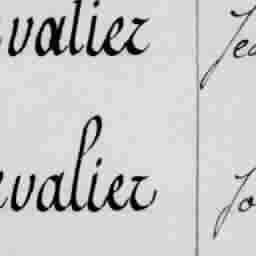 valier Jea
evalier Jo